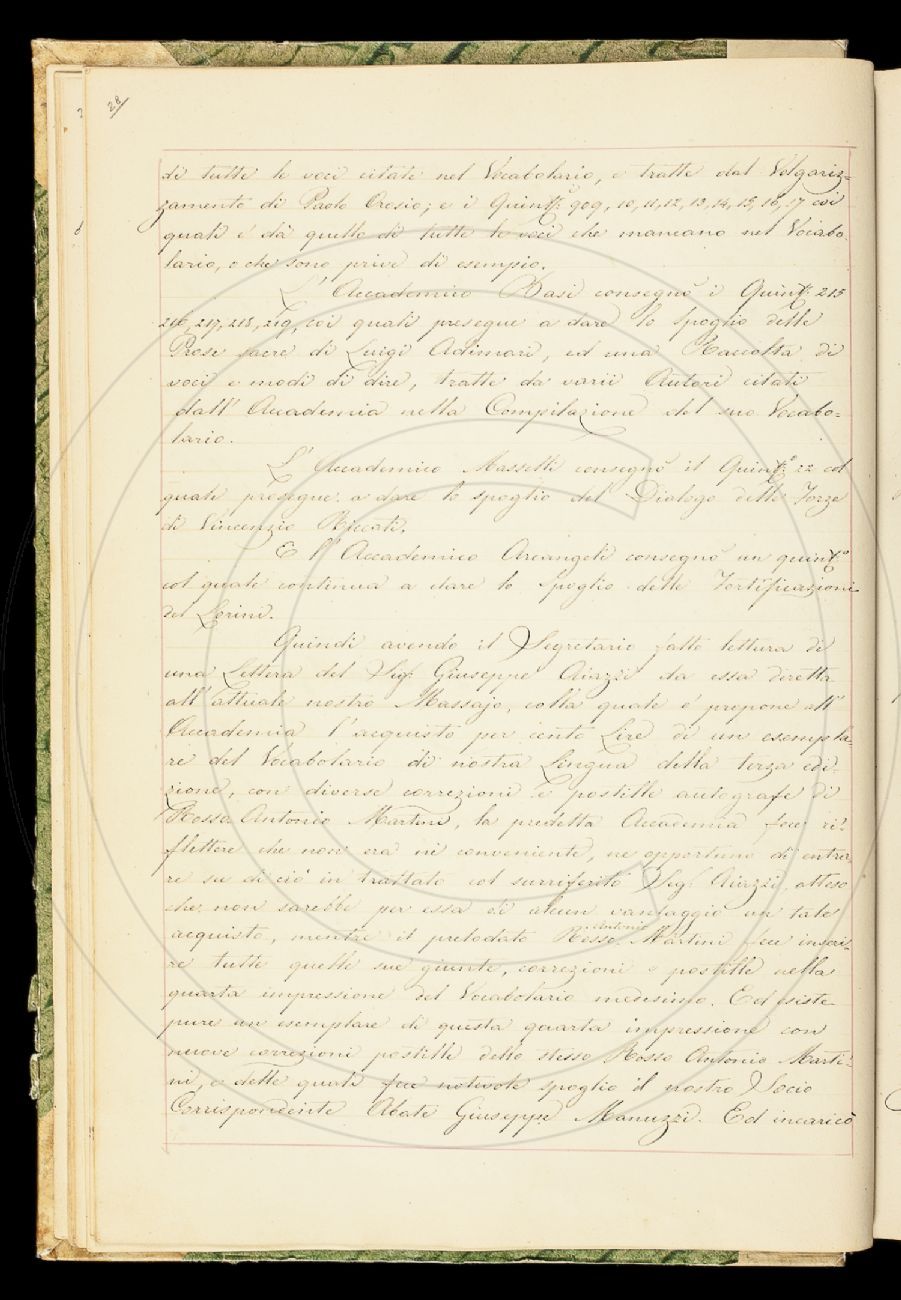 28
di tutte le voci citate nel Vocabolario, e tratte dal Volgariz=
zamento di Paolo Orosio; e i Quint.ⁱ 909, 10, 11, 12, 13, 14, 15, 16, 17 coi
quali è dà quello di tutte le voci che mancano nel Vocabo-
lario, o che sono prive di esempio.
L' Accademico Basi consegnò i Quint.ⁱ 215
216, 217, 218, 219, coi quali prosegue a dare lo spoglio delle
Prose sacre di Luigi Adimari, ed una Raccolta di
voci e modi di dire, tratte da varii Autori citati
dall' Accademia nella Compilazione del suo Vocabo=
lario.
L' Accademico Masselli consegnò il Quint.° 22 col
quale prosegue a dare lo spoglio del Dialogo delle Forze
di Vincenzio Riccati.
E l' Accademico Arcangeli consegnò un quint.°
col quale continua a dare lo spoglio delle Fortificazioni
del Lorini.
Quindi avendo il Segretario fatto lettura di
una Lettera del Sig: Giuseppe Aiazzi da esso diretta
all' attuale nostro Massajo, colla quale è propone all'
Accademia l' acquisto per cento Lire di un esempla-
re del Vocabolario di nostra Lingua della terza edi-
zione, con diverse correzioni e postille autografe di
Rosso Antonio Martini, la predetta Accademia fece ri-
flettere che non era nè conveniente, ne opportuno di entra-
re su di ciò in trattato col surriferito Sig: Aiazzi, atteso
che non sarebbe per essa di alcun vantaggio un tale
acquisto, mentre il prelodato Rosso Antonio Martini fece inseri-
re tutte quelle sue giunte, correzioni e postille nella
quarta impressione del Vocabolario medesimo. Ed esiste
pure un esemplare di questa quarta impressione con
nuove correzioni postille dello stesso Rosso Antonio Marti-
ni, e delle quali fece notevole spoglio il nostro Socio
Corrispondente Abate Giuseppe Manuzzi. Ed incaricò